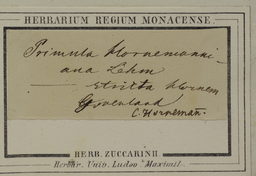 HERBARIUM REGIUM MONACENSE.
Primula Hornemanni-
ana Lehm
— stricta Hornem
Groenland
C. Horneman.
HERB. ZUCCARINII
Herbar. Univ. Ludov. Maximil.